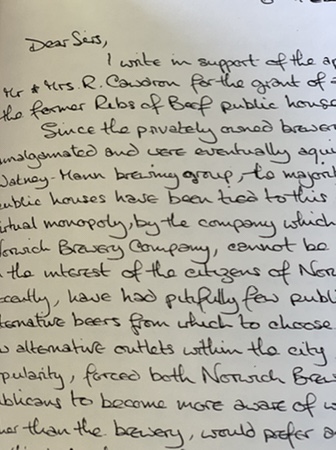 Dear Sirs,
I write in support of the ap
Mr & Mrs. R. Cawdron for the grant of a
the former Ribs of Beef public house
Since the privately owned brewer
amalgamated and were eventually aquir
Watney-Mann brewing group, the majorit
public houses have been tied to this
irtual monopoly, by the company which
Norwich Brewery Company, cannot be
n the interest of the citizens of Nor
recently, have had pitifully few publi
ternative beers from which to choose
w alternative outlets within the city
pularity, forced both Norwich Brew
ublicans to become more aware of w
her than the brewery, would prefer a